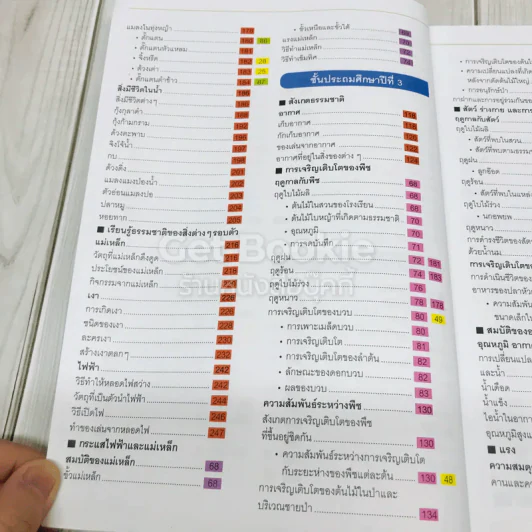 แมลงในทุ่งหญ้า 179
• ตั๊กแตน 180 86
• ตั๊กแตนหัวแหลม 181
• จิ้งหรีด 182 26
• ด้วงเต่า 183 25
• ตั๊กแตนตำข้าว 184 87
สิ่งมีชีวิตในน้ำ 190
สิ่งมีชีวิตต่างๆ
กุ้งกุลาดำ
กุ้งก้ามกราม
ด้วงตะพาบ
จิงโจ้น้ำ
กบ
ด้วงดิ่ง
แมลงแมงป่องน้ำ
ตัวอ่อนแมลงปอ
ปลาหมู 204
หอยทาก 205
■ เรียนรู้ธรรมชาติของสิ่งต่างๆรอบตัว
แม่เหล็ก 216
วัตถุที่แม่เหล็กดึงดูด 216
ประโยชน์ของแม่เหล็ก 218
กิจกรรมจากแม่เหล็ก
เงา 226
การเกิดเงา 226
ชนิดของเงา 228
ละครเงา 230
สร้างเงาตลกๆ 232
ไฟฟ้า 242
วิธีทำให้หลอดไฟสว่าง 242
วัตถุที่เป็นตัวนำไฟฟ้า 244
วิธีเปิดไฟ 246
ทำของเล่นจากหลอดไฟ 247
■ กระแสไฟฟ้าและแม่เหล็ก
สมบัติของแม่เหล็ก 68
ขั้วแม่เหล็ก 68
• ขั้วเหนือและขั้วใต้ 69
แรงแม่เหล็ก
วิธีทำแม่เหล็ก
วิธีทำเข็มทิศ 74
ชั้นประถมศึกษาปีที่ 3
■ สังเกตธรรมชาติ
อากาศ 118
เก็บอากาศ 118
กักเก็บอากาศ
ของเล่นจากอากาศ 122
อากาศที่อยู่ในสิ่งของต่าง ๆ 124
■ การเจริญเติบโตของพืช
ฤดูกาลกับพืช 68
ฤดูใบไม้ผลิ 68
• ต้นไม้ในสวนของโรงเรียน 68
• ต้นไม้ใบหญ้าที่เกิดตามธรรมชาติ 70
• อุณหภูมิ 70
• การจดบันทึก 71
ฤดูฝน 72 181
ฤดูร้อน 74 183
ฤดูใบไม้ร่วง 76
ฤดูหนาว 78 178
การเจริญเติบโตของบวบ 80 49
• การเพาะเมล็ดบวบ 80
• การเจริญเติบโต 81
• การเจริญเติบโตของลำต้น 82
• ลักษณะของดอกบวบ 82
• ผลของบวบ 83
ความสัมพันธ์ระหว่างพืช 130
สังเกตการเจริญเติบโตของพืช
ที่ขึ้นอยู่ชิดกัน 130
• ความสัมพันธ์ระหว่างการเจริญเติบโต
กับระยะห่างของพืชแต่ละต้น 130 48
การเจริญเติบโตของต้นไม้ในป่าและ
บริเวณชายป่า 134
• การเจริญเติบโตของต้นไม้
■ สัตว์ ร่างกาย และการ
ฤดูกาลกับสัตว์
ฤดูใบไม้ผลิ
• สัตว์ที่พบในสวน
• สัตว์ที่พบตามธรรม
ฤดูฝน
• ลูกอ๊อด
ฤดูร้อน
• สัตว์ที่พบในแหล่ง
ฤดูใบไม้ร่วง
• นกอพยพ
ฤดูหนาว
การดำรงชีวิตของสัตว์
ด้วยน้ำนม
การเจริญเติบโตของ
การดำเนินชีวิตของ
อาหารของปลาหัว
• ความสัมพัน
ขนาดเล็กใน
■ สมบัติของอา
อุณหภูมิ อากา
การเปลี่ยนแปล
และน้ำ
น้ำเดือด
น้ำแข็ง
ไอน้ำในอากา
อุณหภูมิสูง
■ แรง
คานและค
Get Bookie
ร้านหนังสือบุ๊คกี้